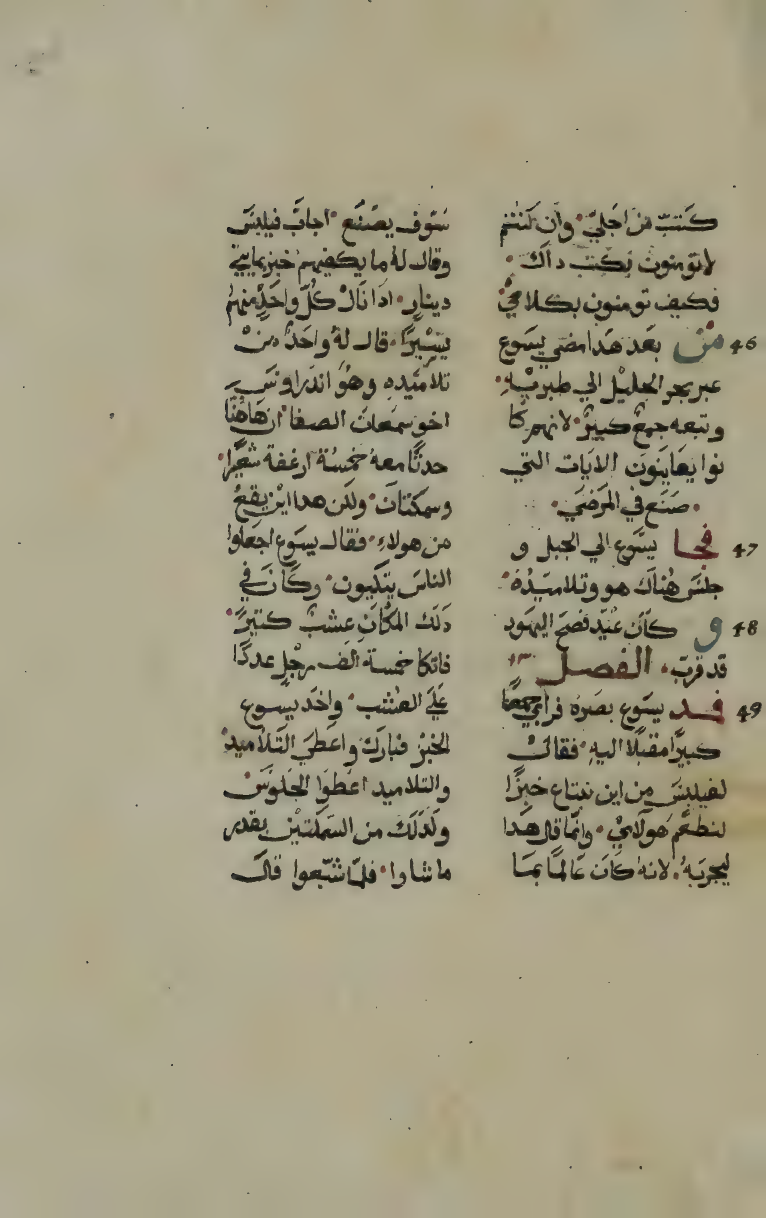 كتب من اجلي وان كنتم
لا تومنون بكتب داك
فكيف تومنون بكلامي
46 من بعد هدا مضي يسوع
عبر بحر الجليل الي طبريه
وتبعه جمع كبير لانهم كا
نوا يعاينون الايات التي
صنع في المرضي
47 فجا يسوع الي الجبل و
جلس هناك هو وتلاميده
48 و كان عيد فصح اليهود
قد قرب الفصل
49 يسوع بصره فراي جمعا
كبيرا مقبلا اليه فقال
لفيلبس من اين نبتاع خبزا
لنطعم هولاي وانما قال هدا
ليجربه لانه كان عالما بما
سوف يصنع اجاب فيلبس
وقال له ما يكفيهم خبز بمايتي
دينار ادا نال كل واحد منهم
يسيرا قال له واحد من
تلاميده وهو اندراوس
اخو سمعان الصفا ان هاهنا
حدثا معه خمسة ارغفة شعيرا
وسمكتان ولكن هدا اين يقع
من هولاء فقال يسوع اجعلوا
الناس يتكيون وكان في
دلك المكان عشب كتير
فاتكا خمسة الف رجل عددا
علي العشب واخد يسوع
الخبز فبارك واعطي التلاميد
والتلاميد اعطوا الجلوس
ولدلك من السمكتين بقدر
ما شاوا فلما شبعوا قال